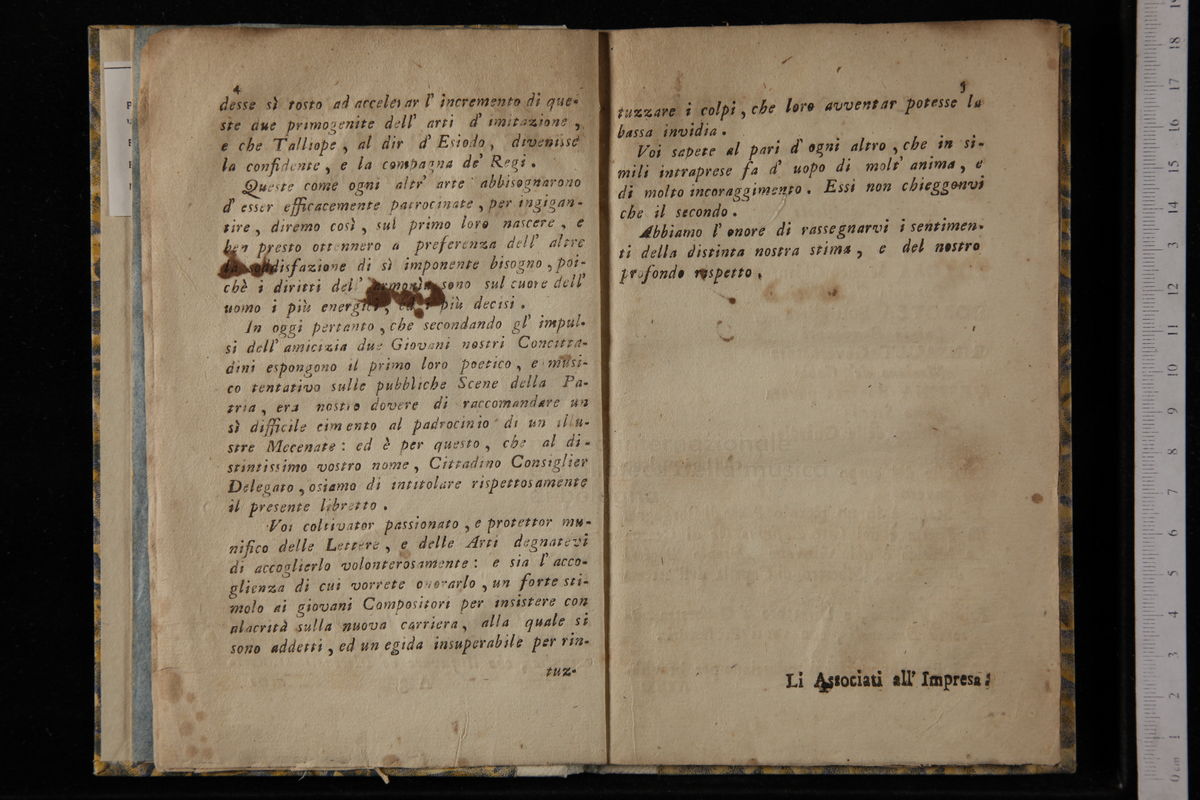 4
desse sì tosto ad accelerar l' incremento di que-
ste due primogenite dell' arti d' imitazione,
e che Talliope, al dir d' Esiodo, divenisse
la confidente, e la compagna de' Regi.
Queste come ogni altr' arte abbisognarono
d' esser efficacemente patrocinate, per ingigan-
tire, diremo così, sul primo loro nascere, e
ben presto ottennero a preferenza dell' altre
la soddisfazione di sì imponente bisogno, poi-
chè i diritti dell' armonìa sono sul cuore dell'
uomo i più energici, ed i più decisi.
In oggi pertanto, che secondando gl' impul-
si dell' amicizia due Giovani nostri Concitta-
dini espongono il primo loro poetico, e musi-
co tentativo sulle pubbliche Scene della Pa-
tria, era nostro dovere di raccomandare un
sì difficile cimento al padrocinio di un illu-
stre Mecenate: ed è per questo, che al di-
stintissimo vostro nome, Cittadino Consiglier
Delegato, osiamo di intitolare rispettosamente
il presente libretto.
Voi coltivator passionato, e protettor mu-
nifico delle Lettere, e delle Arti degnatevi
di accoglierlo volonterosamente: e sia l' acco-
glienza di cui vorrete onorarlo, un forte sti-
molo ai giovani Compositori per insistere con
alacrità sulla nuova carriera, alla quale si
sono addetti, ed un egida insuperabile per rin-
tuz-
5
tuzzare i colpi, che loro avventar potesse la
bassa invidia.
Voi sapete al pari d' ogni altro, che in si-
mili intraprese fa d' uopo di molt' anima, e
di molto incoraggimento. Essi non chieggonvi
che il secondo.
Abbiamo l' onore di rassegnarvi i sentimen-
ti della distinta nostra stima, e del nostro
profondo rispetto.
Li Associati all' Impresa.